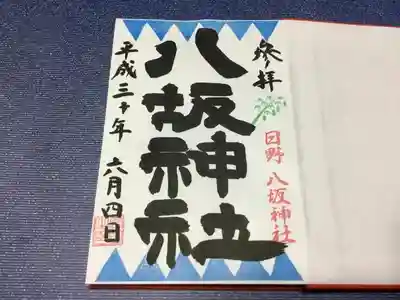 參拜
日野 八坂神社
八坂神社
平成三十年 六月四日